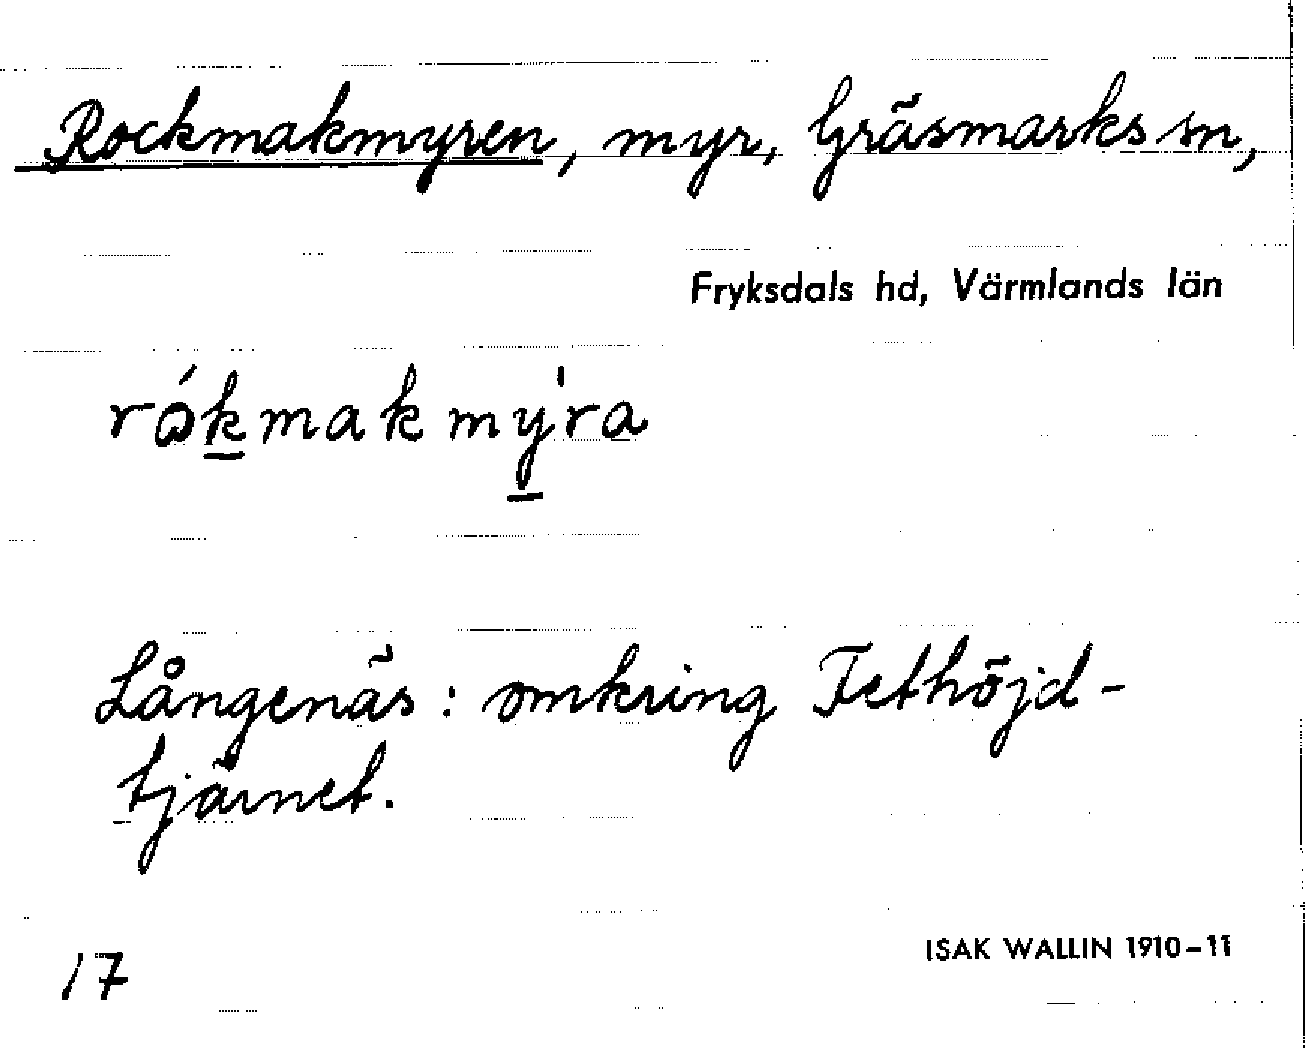 Rockmakmyren, myr, Gräsmarks sn,
Fryksdals hd, Värmlands län
rókmakmy̍ra
Långenäs: omkring Tethöjd-
tjärnet.
17
ISAK WALLIN 1910-11